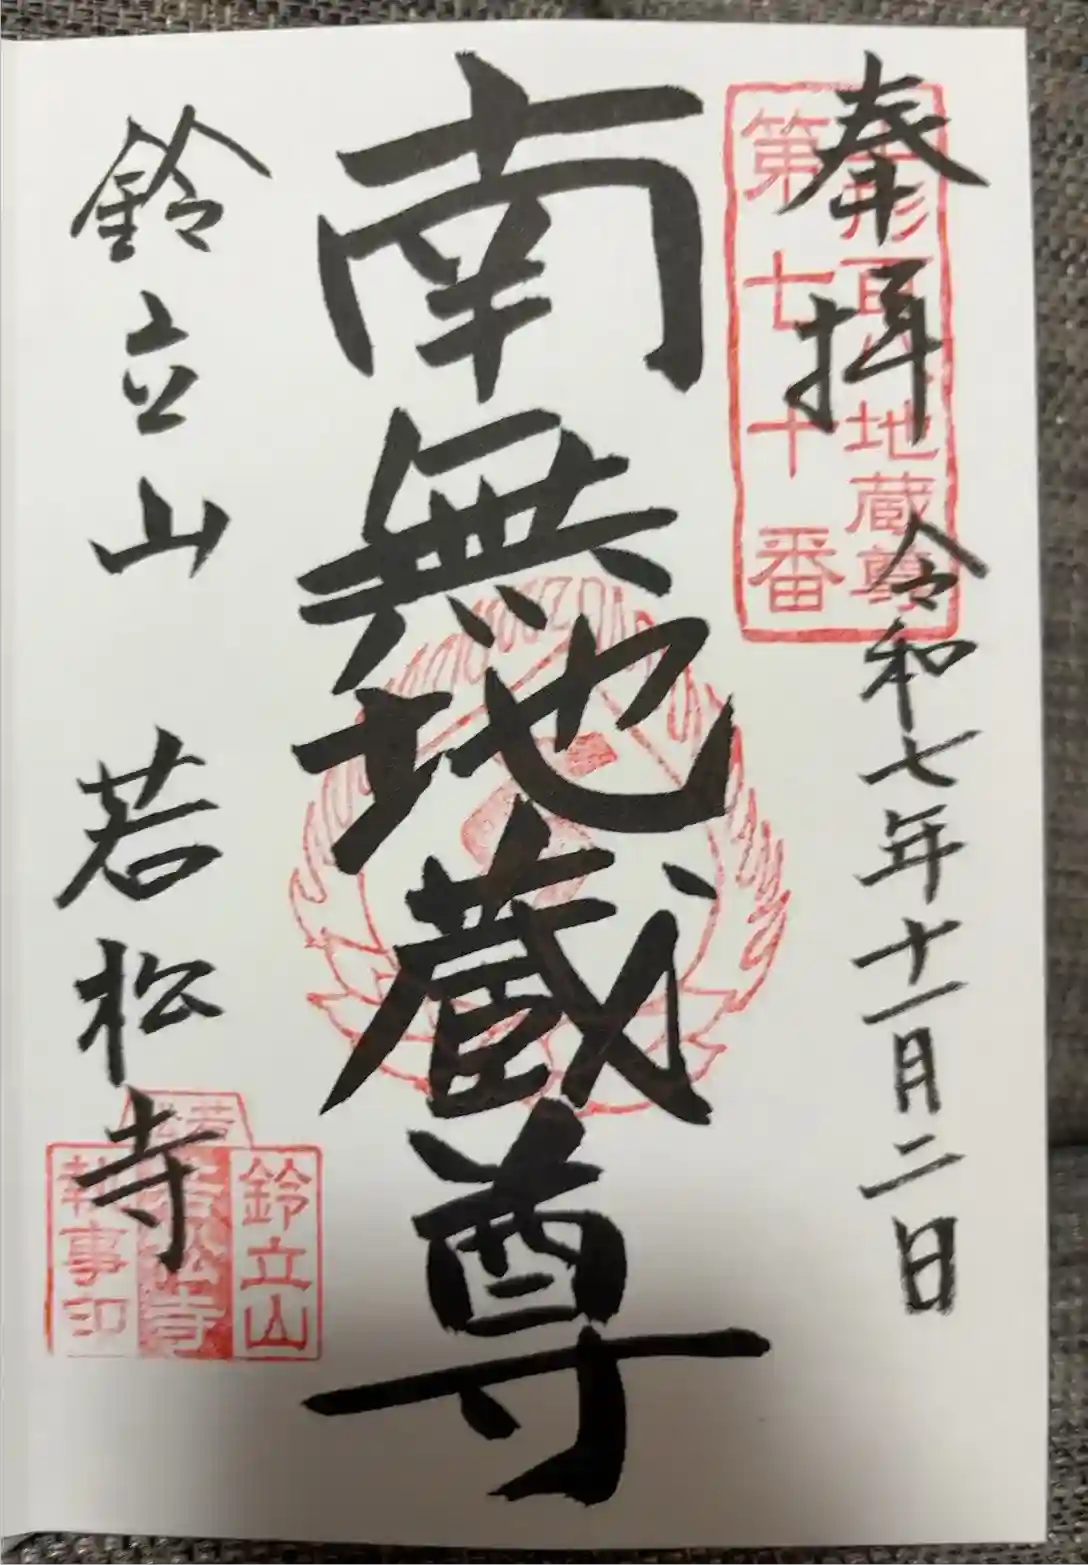 奉拝
令和七年十一月二日
地蔵尊
第七十番
南無地蔵尊
鈴立山 若松寺
鈴立山
若松寺
執事印